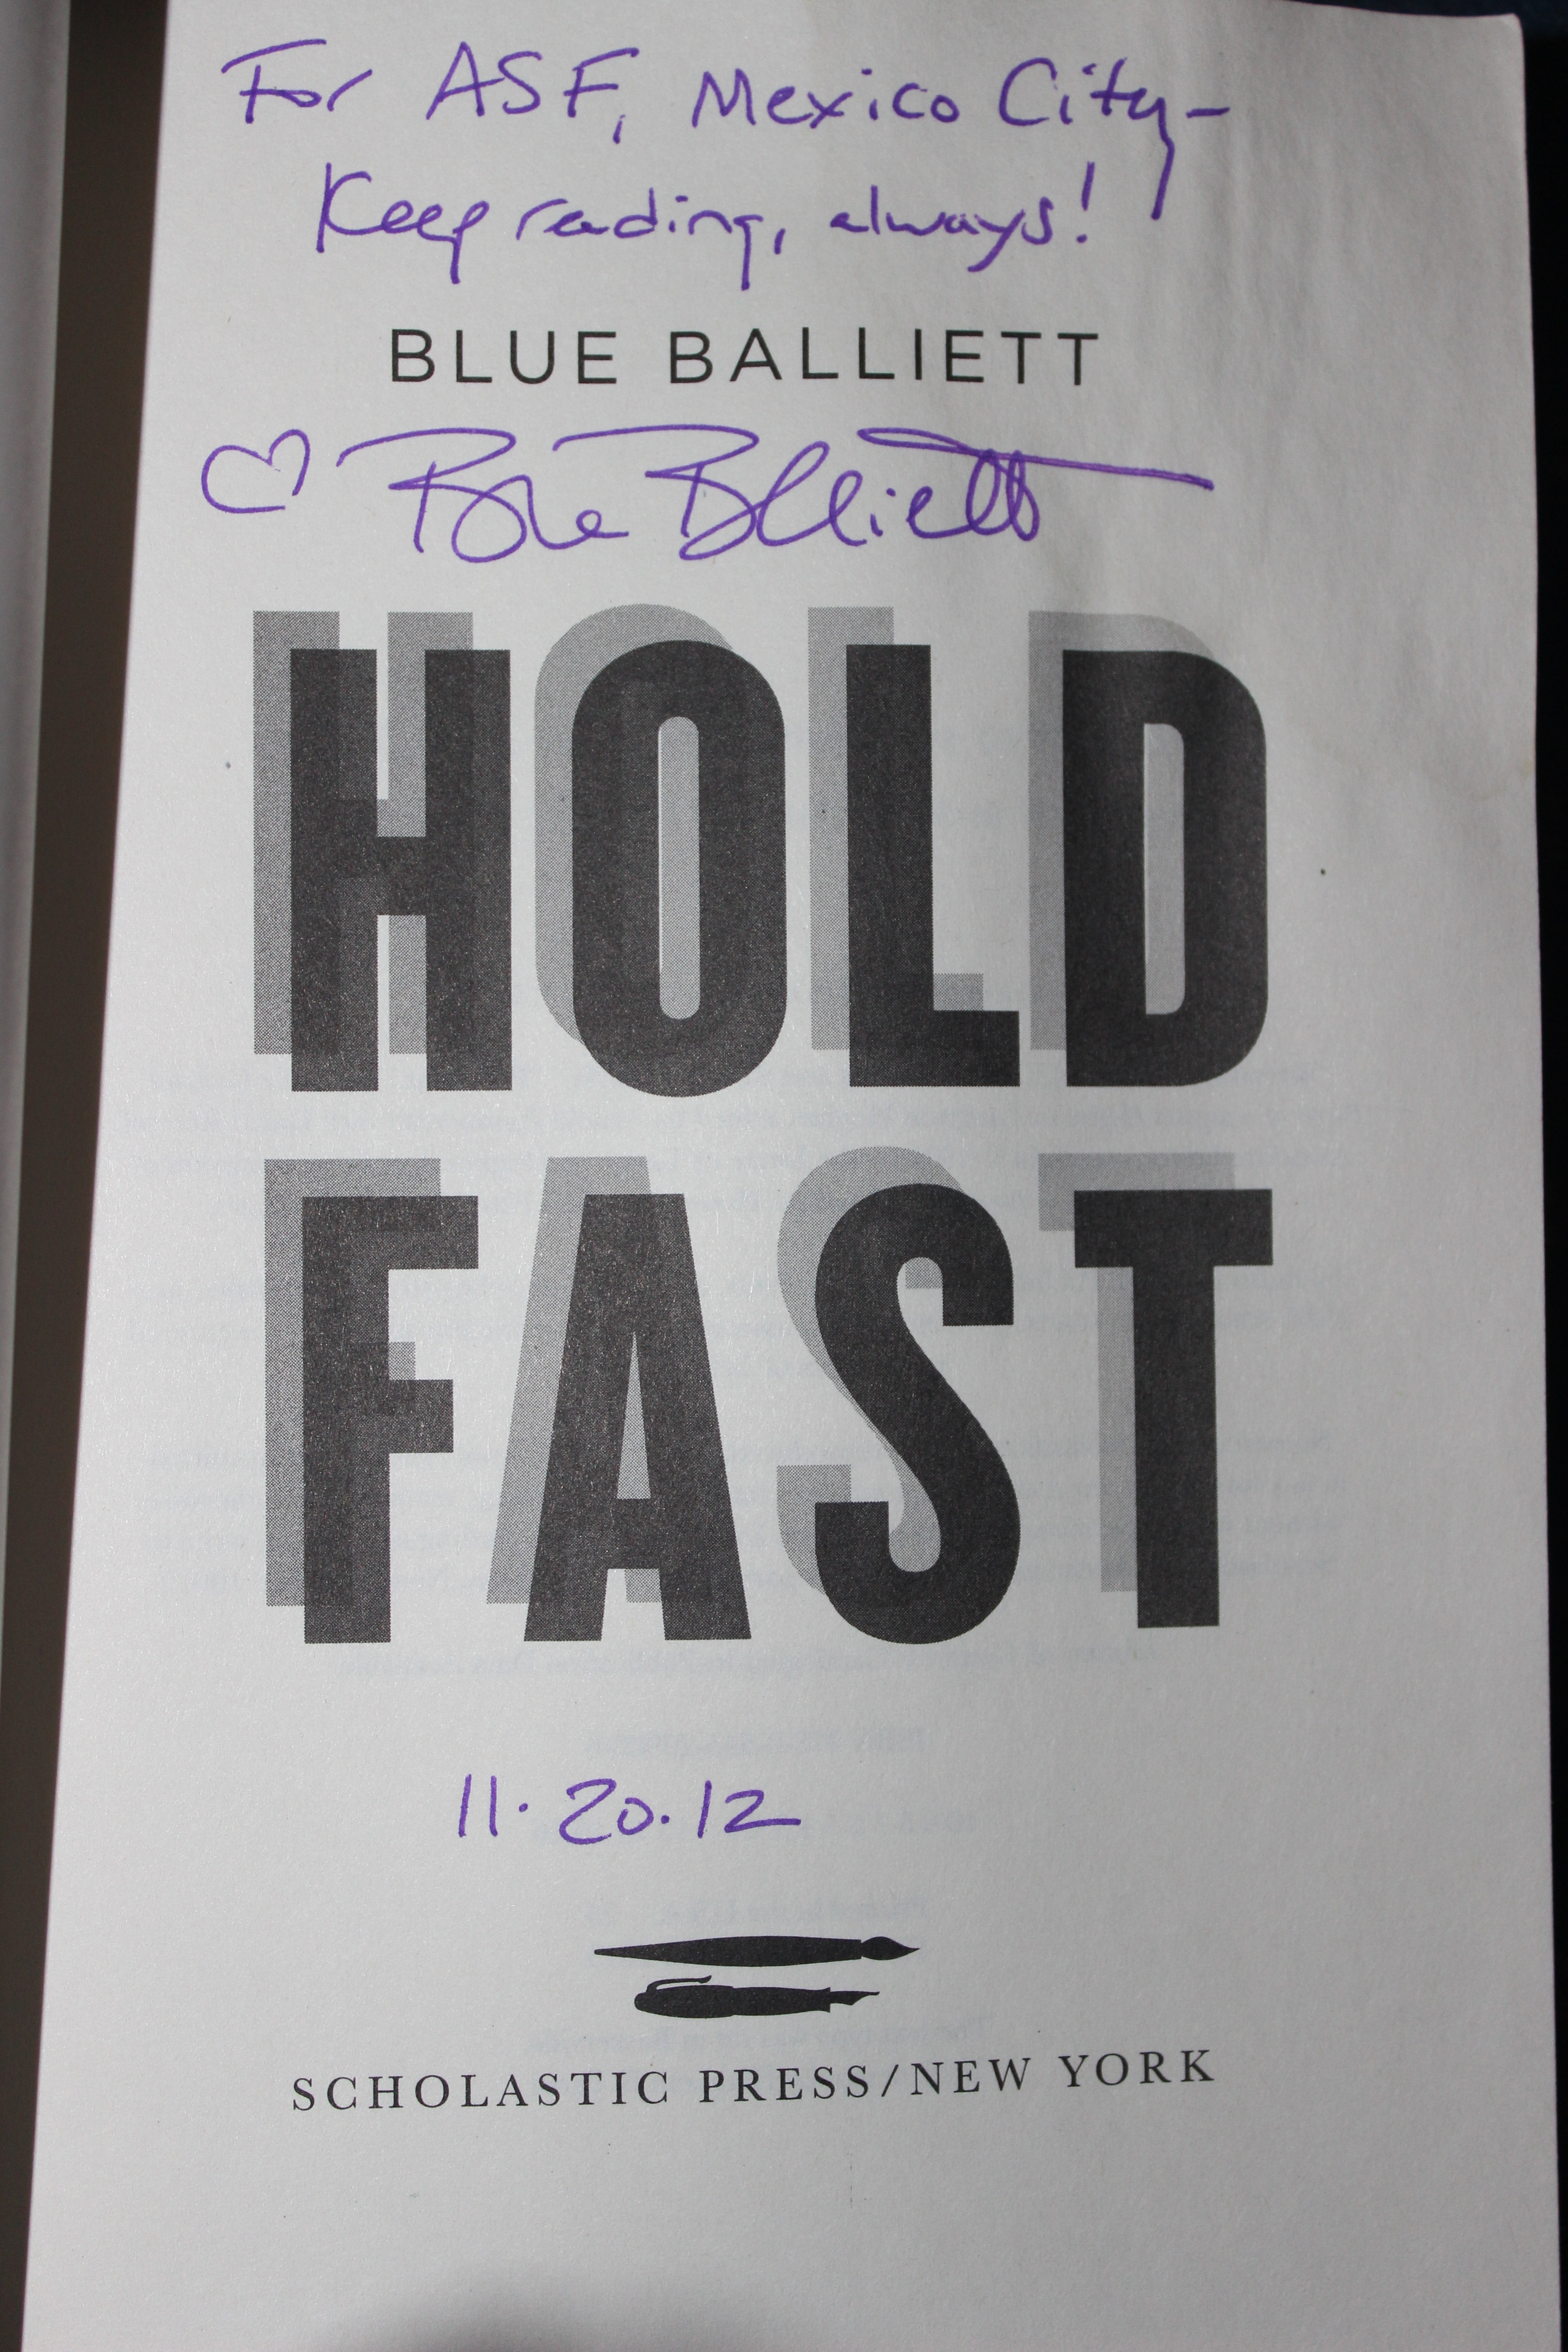 For ASF, Mexico City-
Keep reading, always!
BLUE BALLIETT
Blue Balliett
HOLD
FAST
11.20.12
SCHOLASTIC PRESS/NEW YORK